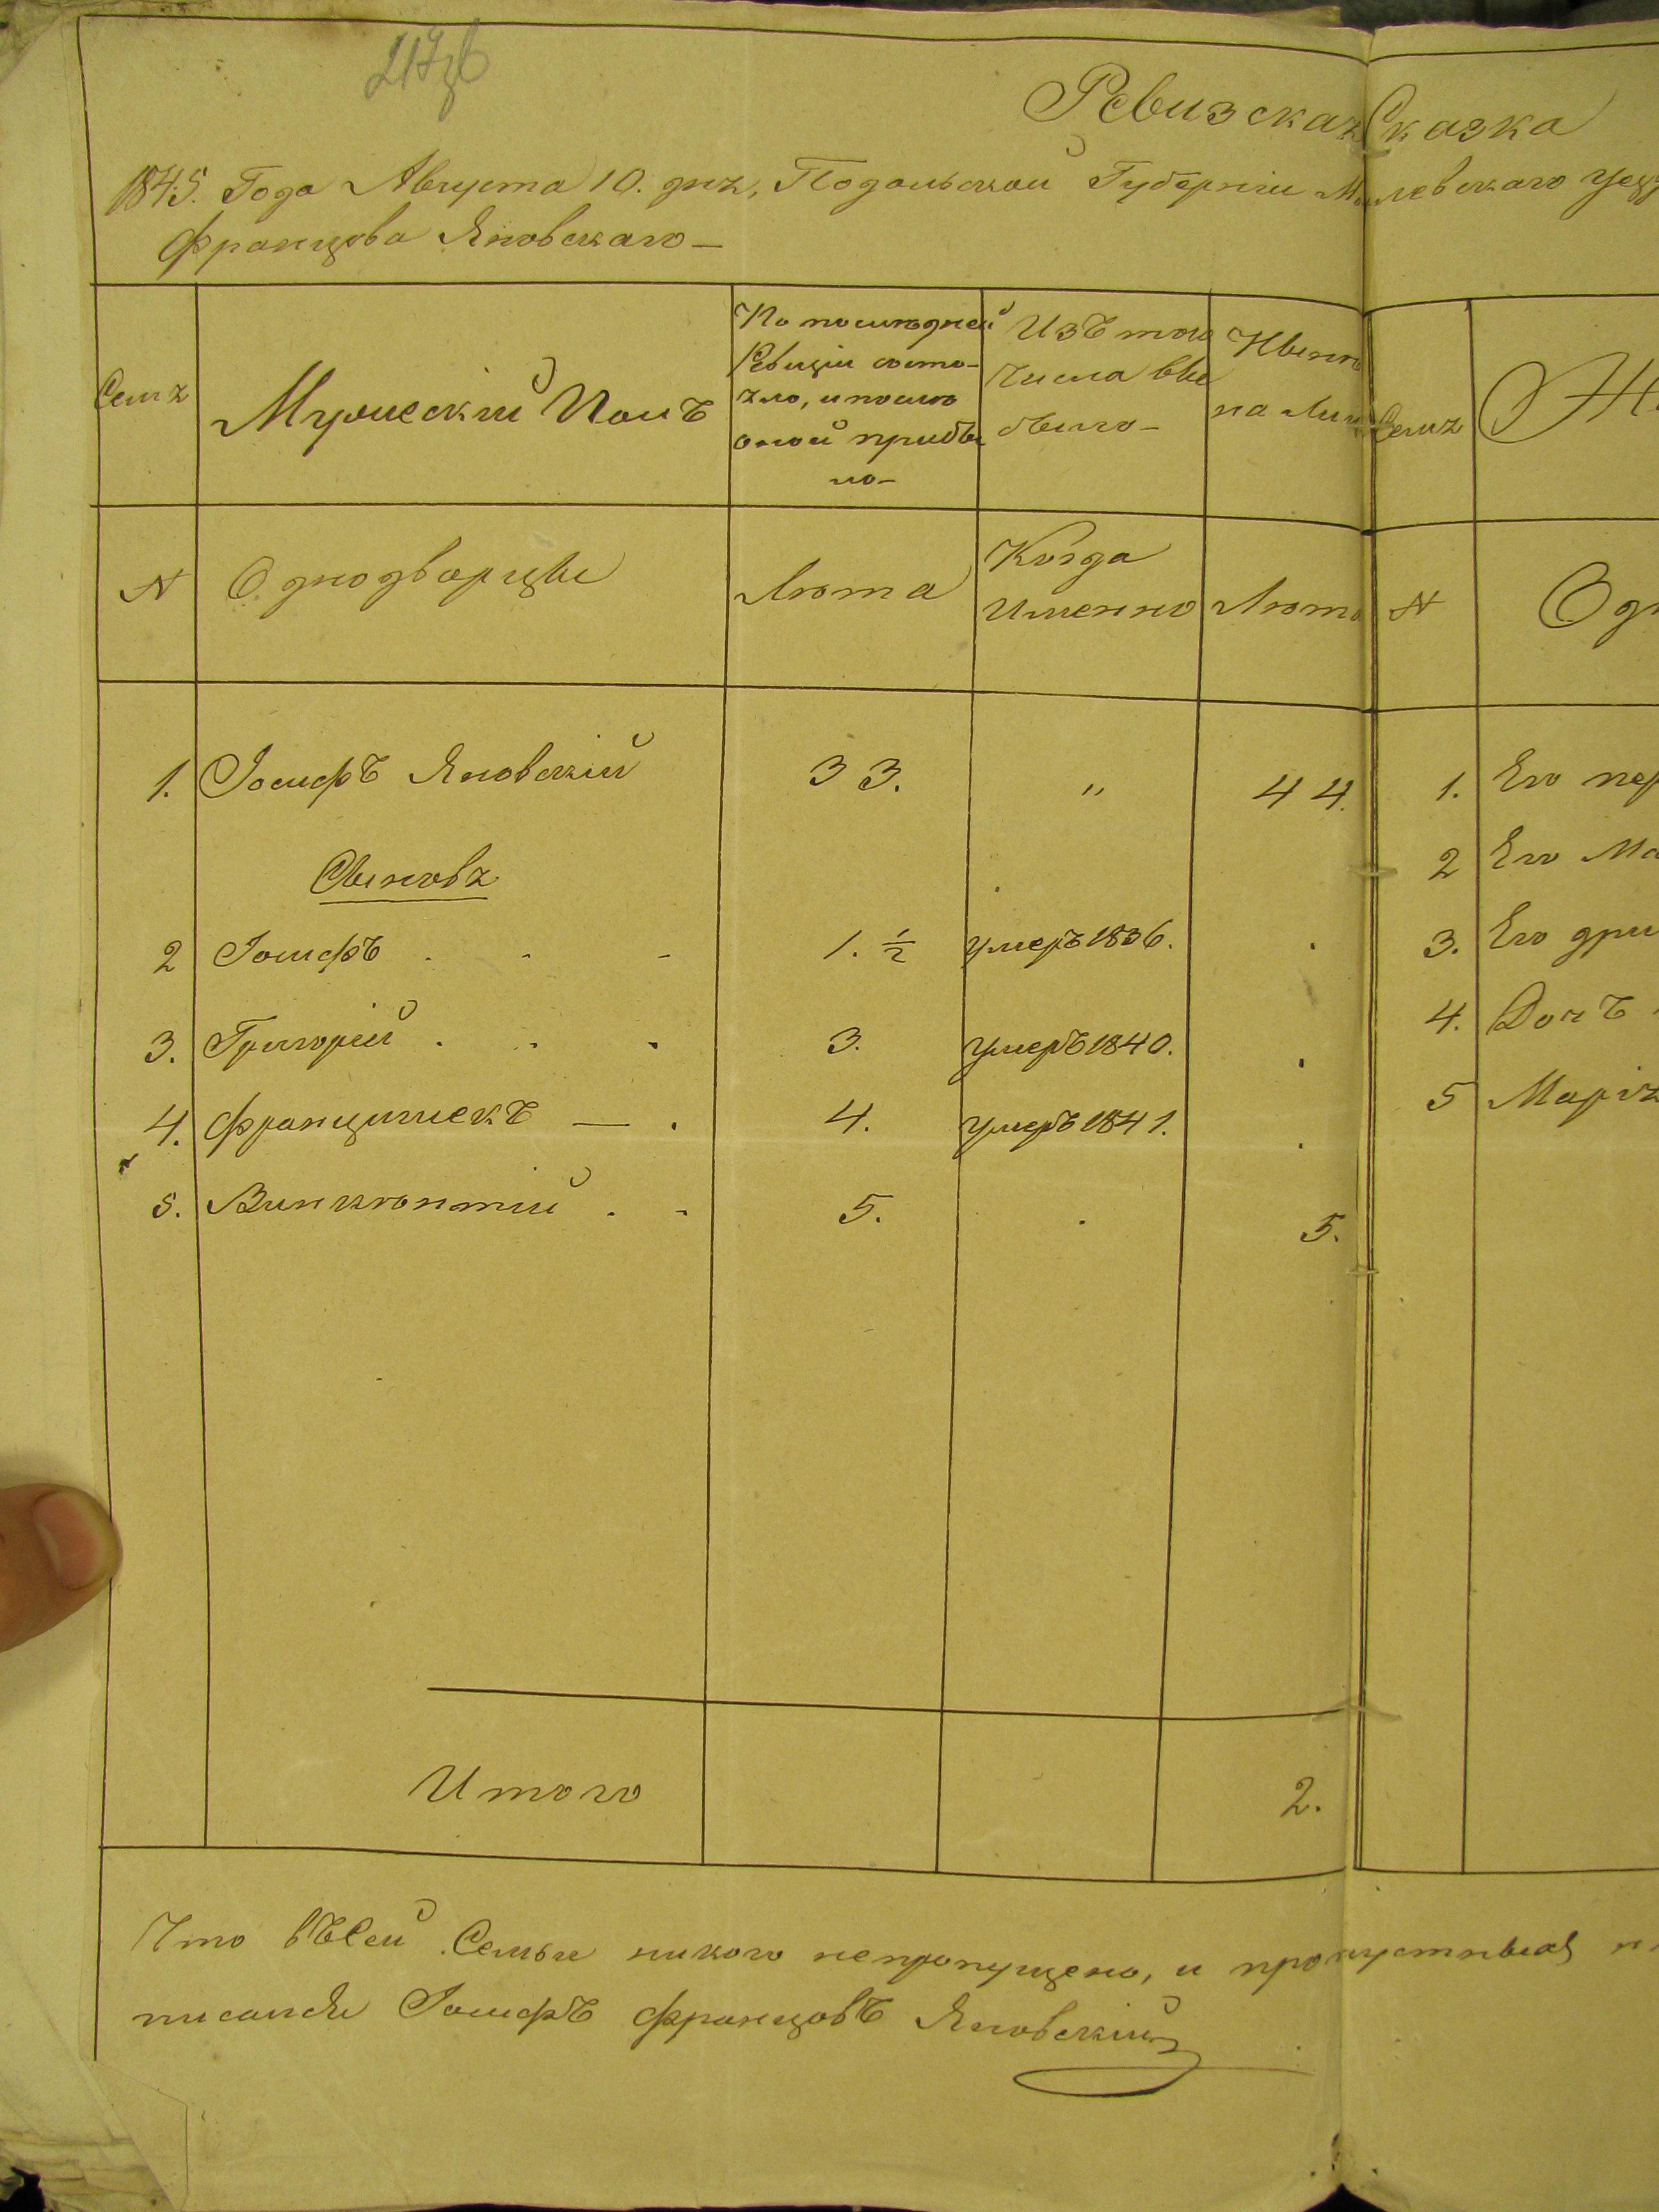 Ревизская Сказка
1845. Года Августа 10. дня, Подольской Губерніи
Францова Яновскаго —
Семя
Мужескій Полъ
По последней
Ревизіи состо-
яло, и после
оной прибы
ло —
Изъ того
Числа вы
было —
Ныне
на Ли
Семя
Ж
N
Однодворцы
Лѣта
Когда
Именно
Лѣта
N
Од
1.
Іосифъ Яновскій
33.
"
44.
1.
Его пер
Сыновя
2
Его Ма
2
Іосифъ . . -
1. ½
умеръ 1836.
.
3.
Его дри
3.
Григорій . . .
3.
умеръ 1840.
.
4.
Дочъ
4.
Францишекъ — .
4.
умеръ 1841.
.
5
Марія
5.
Винкентій . -
5.
.
5.
Итого
2.
Что въ Сей Семьи никого непропущено, и про
Іосифъ Францовъ Яновскій